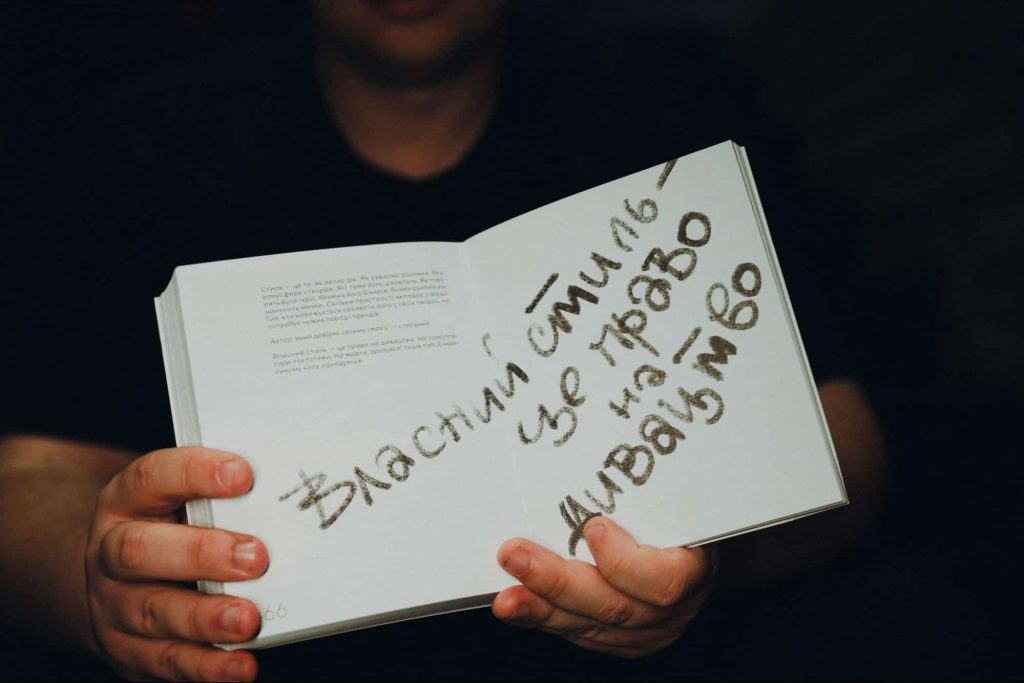 Стиль — це те, як автор діє. Як ухвалює рішення. Яку
атмосферу створює. Які теми його цікавлять. Як гово-
рять його герої. Якими є його бічі. Яким рухом він
наносить мазки. Скільки пристрасті вкладає у вірші.
Той, хто наважується проявити його у своїх творах, не
потребує чужих порад і трендів.
Автор, який довіряє своєму смаку, — стильний.
Власний стиль — це право на дивацтва. На самоповтори.
На тотеми. На жарти, зрозумілі лише тобі й неве-
ликому колу однодумців.
66
Власний стиль —
це право
на
дивацтво